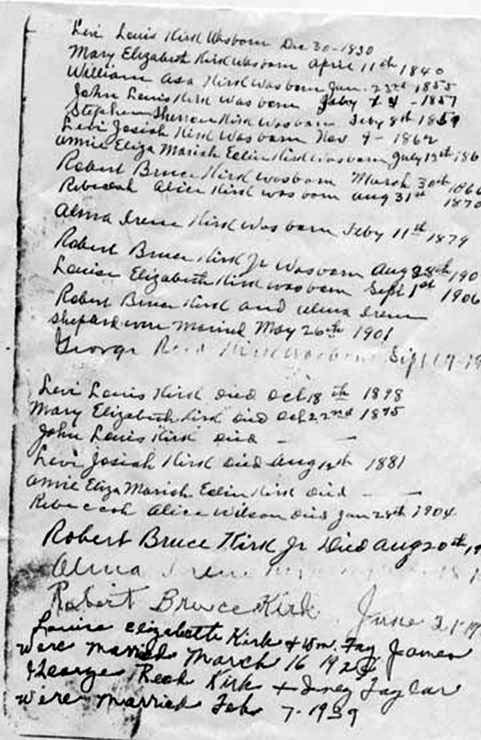 Levi Louis Kirk was born Dec 30-1830
Mary Elizabeth Kirk was born April 11th 1840
William Asa Kirk was born Jan. 23rd 1855
John Louis Kirk was born Feby 4 - 1857
Stephen Kirk was born Feby 8th 1859
Levi Josiah Kirk was born Nov 9 - 1862
Annie Eliza Mariah Kirk was born July 13th 186
Robert Bruce Kirk was born March 30th 1866
Rebecah Alice Kirk was born Aug 31st 1870
Alma Irene Kirk was born Feby 11th 1879
Robert Bruce Kirk Jr was born Aug 28th 190
Louise Elizabeth Kirk was born Sept 1st 1906
Robert Bruce Kirk and Alma Irene
Shepard were married May 26th 1901
George Kirk was born Sept 19-19
Levi Louis Kirk died Oct 18th 1898
Mary Elizabeth Kirk died Oct 22nd 1895
John Louis Kirk died - -
Levi Josiah Kirk died Aug 1881
Annie Eliza Mariah Kirk died - -
Rebeccah Alice Wilson died Jan 28th 1904
Robert Bruce Kirk Jr Died Aug 20th 19
Alma Irene
Robert Bruce Kirk June 21-19
Louise Elizabeth Kirk + Wm. Fay James
were married March 16 192
George Kirk + Inez Taylor
were married Feb 7-1939